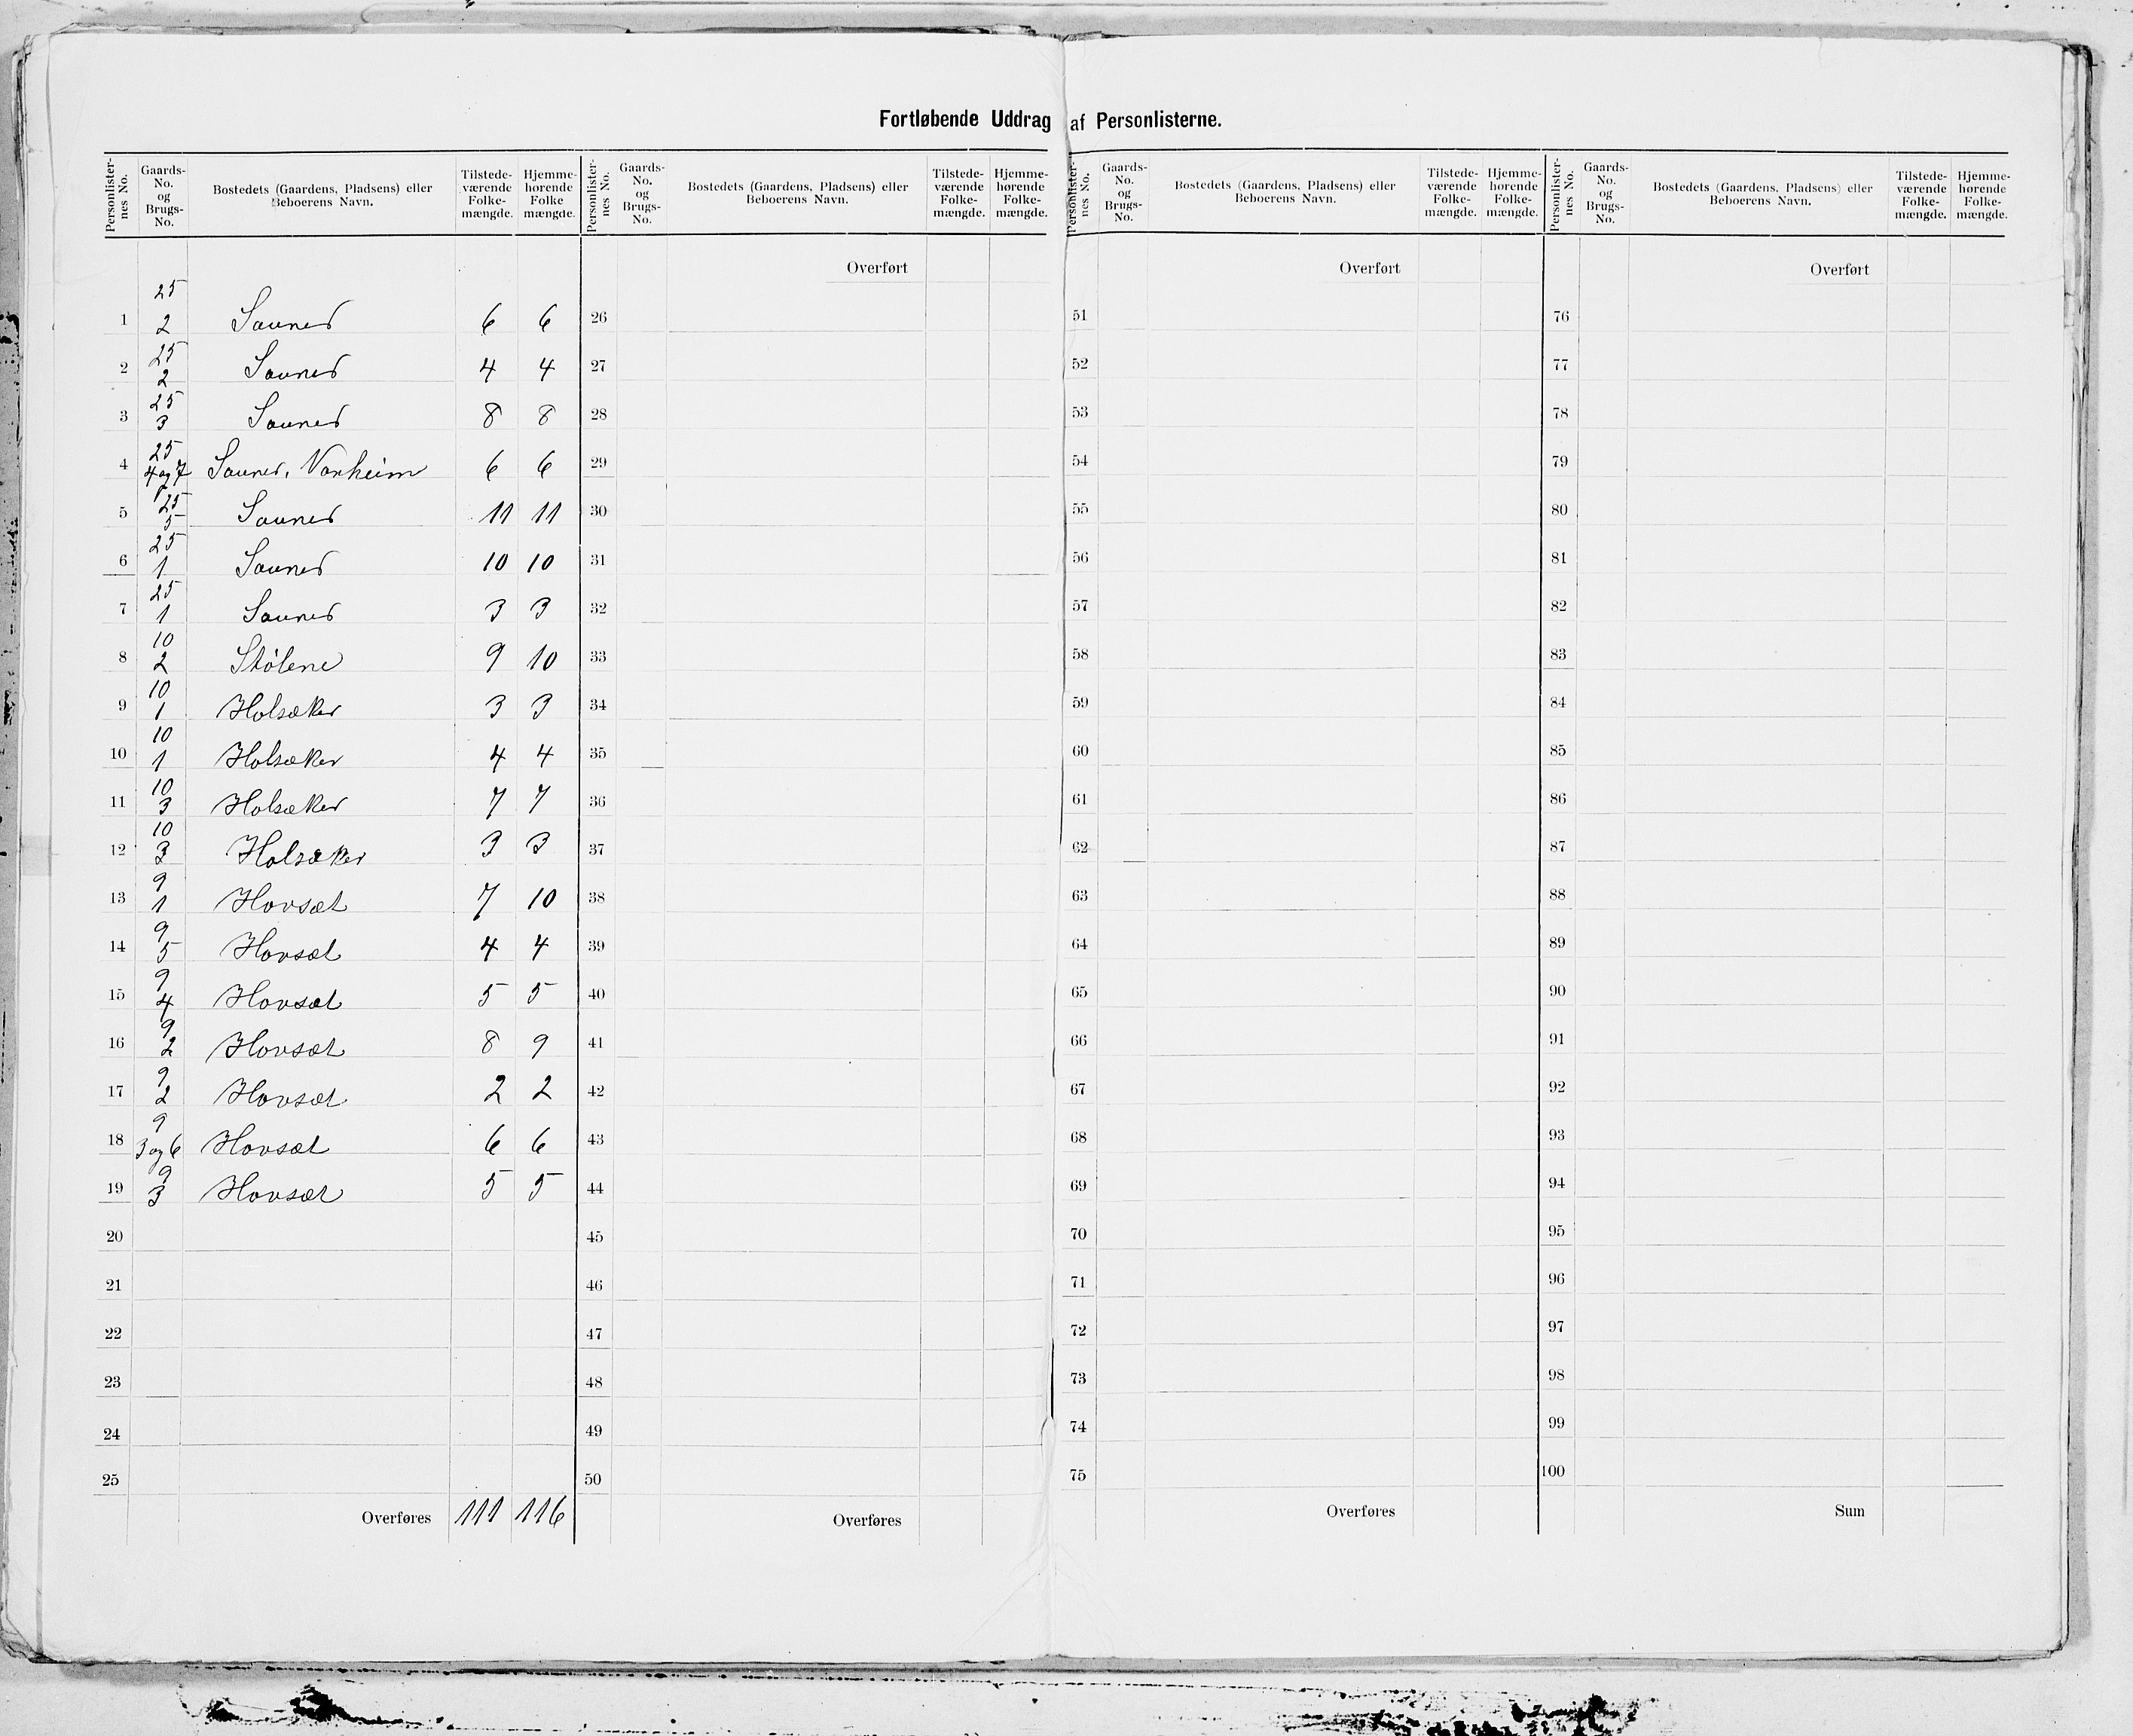 Fortløbende Uddrag af Personlisterne.
Personlister-nes No. Gaards-No. og Brugs-No. Bostedets (Gaardens, Pladsens) eller Beboerens Navn. Tilstede-værende Folke-mængde. Hjemme-hørende Folke mængde.
Personlister-nes No. Gaards-No. og Brugs-No. Bostedets (Gaardens, Pladsens) eller Beboerens Navn. Tilstede-værende Folke-mængde. Hjemme-hørende Folke-mængde.
Personlister-nes No. Gaards-No. og Brugs-No. Bostedets (Gaardens, Pladsens) eller Beboerens Navn. Tilstede-værende Folke-mængde. Hjemme-hørende Folke-mængde.
Personlister-nes No. Gaards-No. og Brugs-No. Bostedets (Gaardens, Pladsens) eller Beboerens Navn. Tilstede-værende Folke-mængde. Hjemme-hørende Folke-mængde.
1 25 2 Saunes 6 6
2 25 2 Saunes 4 4
3 25 3 Saunes 8 8
4 25 4 og 7 Saunes, Vonheim 6 6
5 25 5 Saunes 11 11
6 25 1 Saunes 10 10
7 25 1 Saunes 3 3
8 10 2 Stølene 9 10
9 10 1 Holsæker 3 3
10 10 1 Holsæker 4 4
11 10 3 Holsæker 7 7
12 10 3 Holsæker 3 3
13 9 1 Hovsæt 7 10
14 9 5 Hovsæt 4 4
15 9 4 Hovsæt 5 5
16 9 2 Hovsæt 8 9
17 9 2 Hovsæt 2 2
18 9 3 og 6 Hovsæt 6 6
19 9 3 Hovsæt 5 5
20
21
22
23
24
25
Overføres 111 116
Overført
26
27
28
29
30
31
32
33
34
35
36
37
38
39
40
41
42
43
44
45
46
47
48
49
50
Overføres
Overført
51
52
53
54
55
56
57
58
59
60
61
62
63
64
65
66
67
68
69
70
71
72
73
74
75
Overføres
Overført
76
77
78
79
80
81
82
83
84
85
86
87
88
89
90
91
92
93
94
95
96
97
98
99
100
Sum